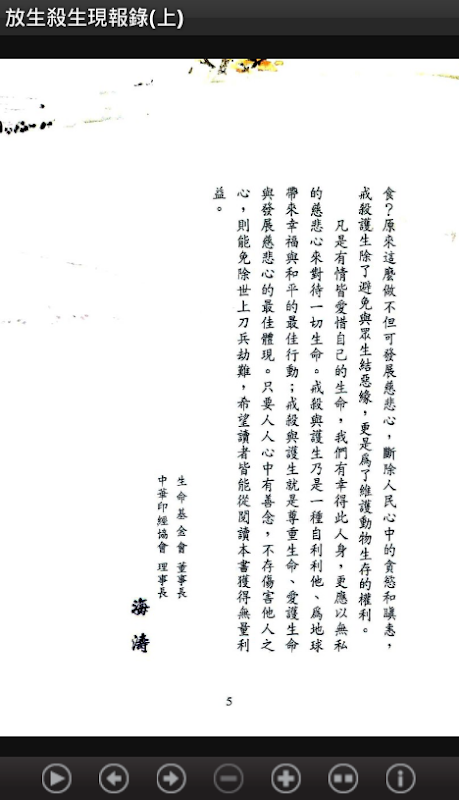 放生殺生現報錄(上)
食？原來這麼做不但可發展慈悲心，斷除人民心中的貪慾和瞋恚，
戒殺護生除了避免與眾生結惡緣，更是為了維護動物生存的權利。
凡是有情皆愛惜自己的生命，我們有幸得此人身，更應以無私
的慈悲心來對待一切生命。戒殺與護生乃是一種自利利他、為地球
帶來幸福與和平的最佳行動；戒殺與護生就是尊重生命、愛護生命
與發展慈悲心的最佳體現。只要人人心中有善念，不存傷害他人之
心，則能免除世上刀兵劫難，希望讀者皆能從閱讀本書獲得無量利
益。
生命基金會 董事長
中華印經協會 理事長
海濤
5